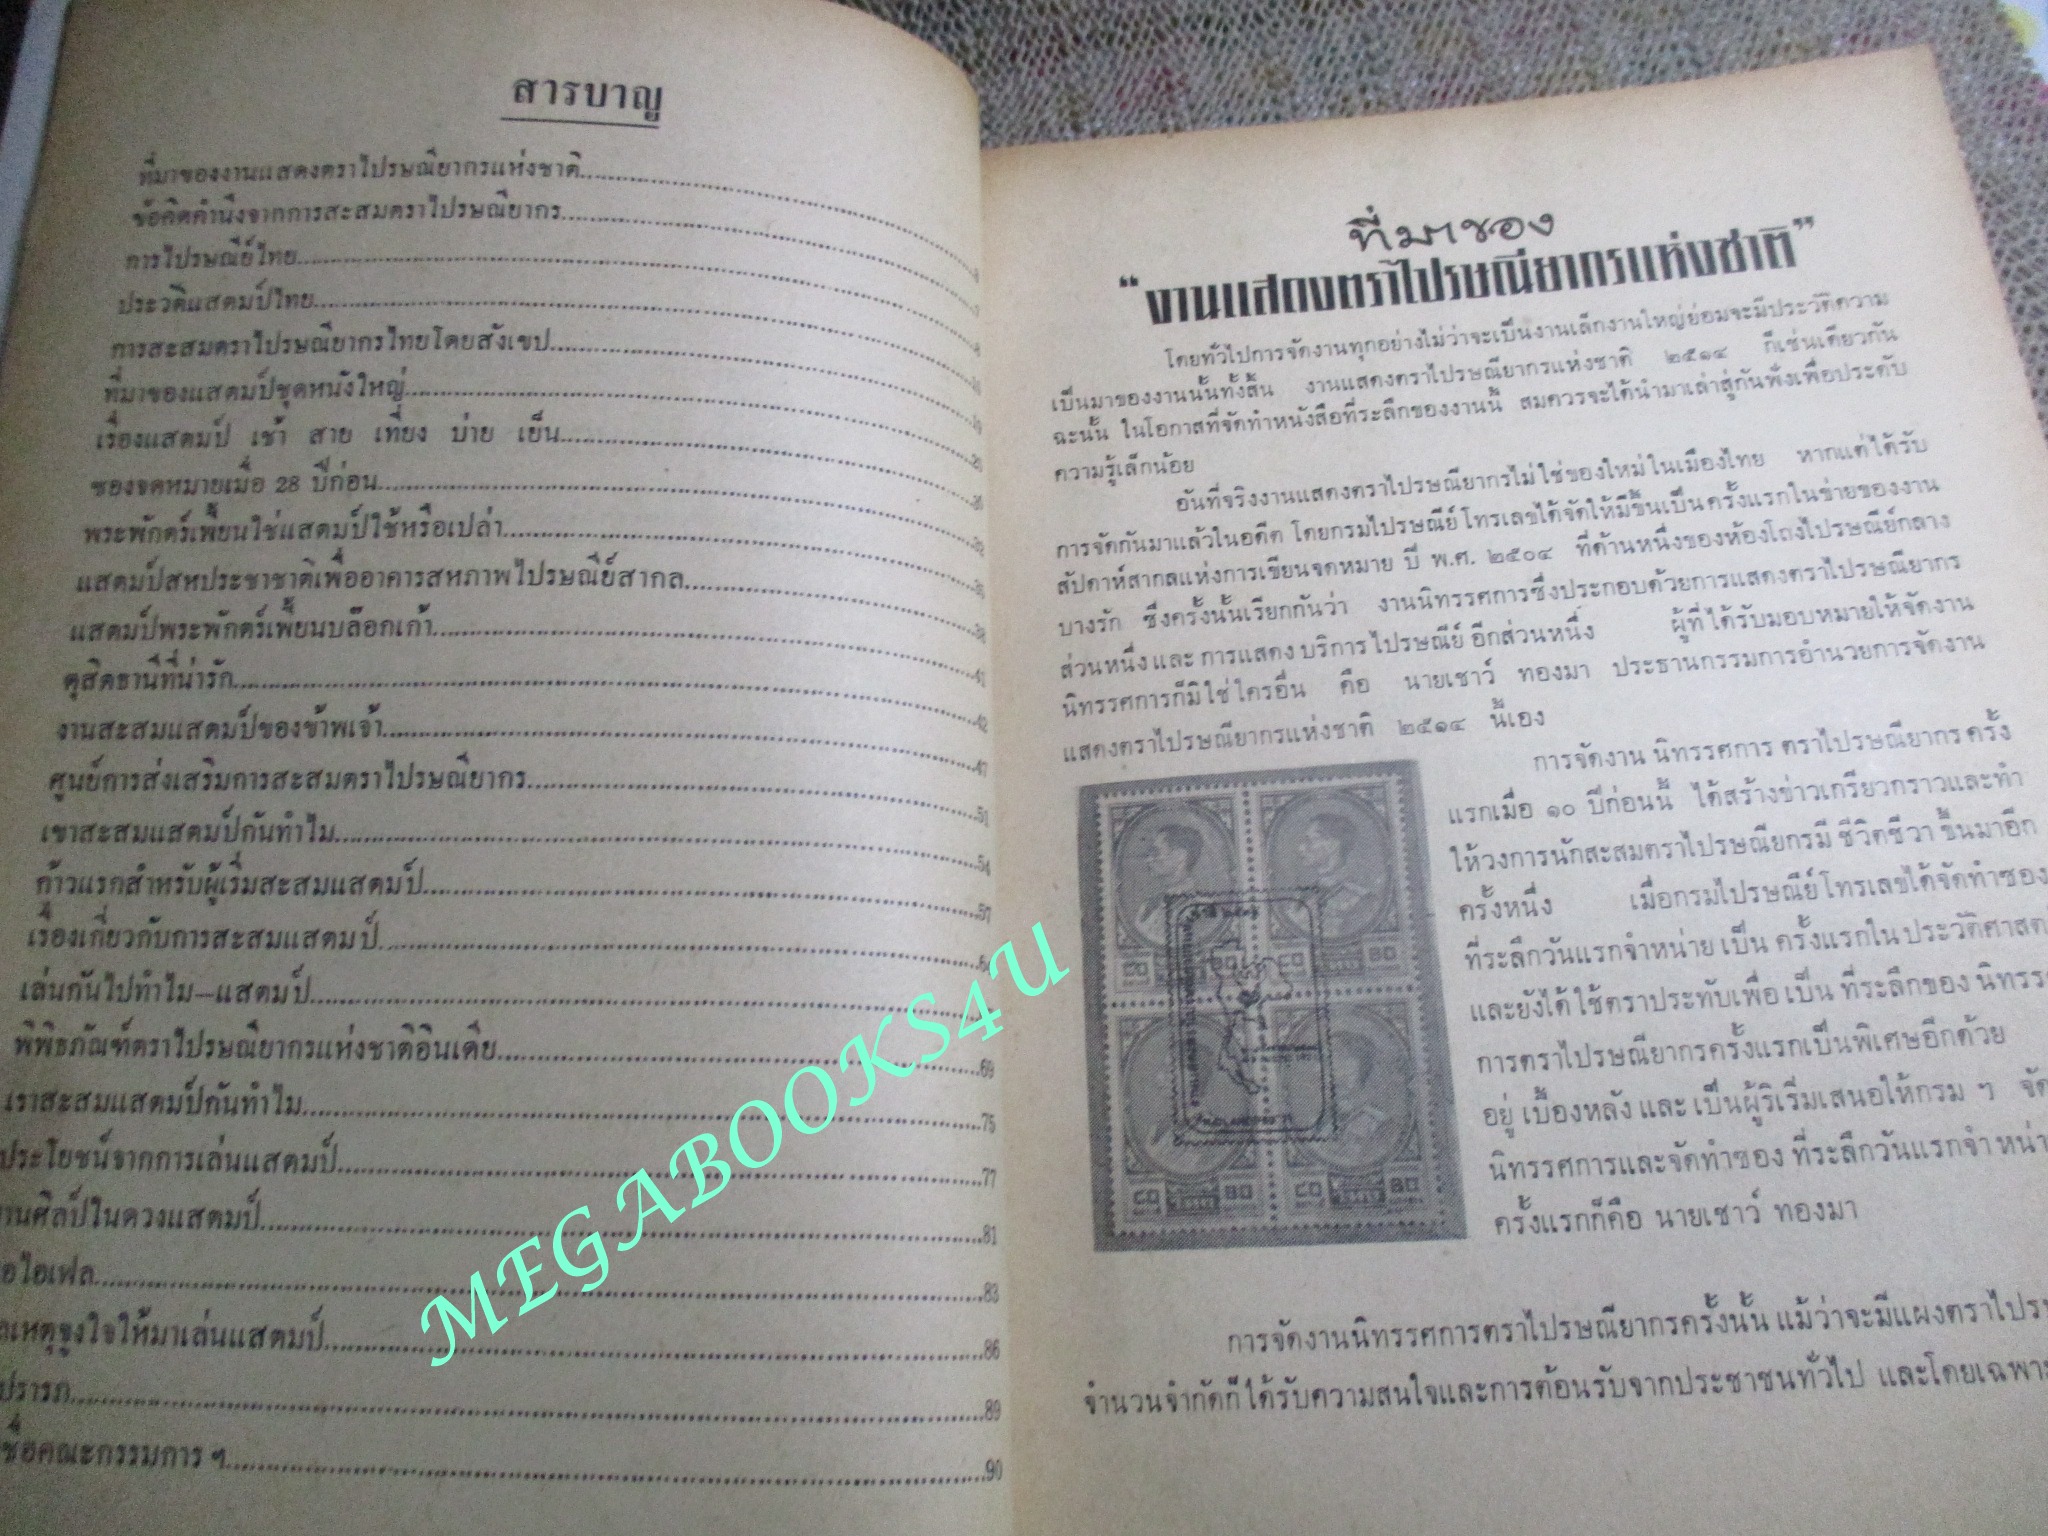 สารบาญ
ที่มาของงานแสดงตราไปรษณียากรแห่งชาติ
ข้อคิดคำนึงจากการสะสมตราไปรษณียากร
การไปรษณีย์ไทย
ประวัติแสตมป์ไทย
การสะสมตราไปรษณียากรไทยโดยสังเขป
ที่มาของแสตมป์ชุดหนังใหญ่
เรื่องแสตมป์ เช้า สาย เที่ยง บ่าย เย็น
ซองจดหมายเมื่อ 28 ปีก่อน
พระพักตร์เพี้ยนใช่แสตมป์ใช้หรือเปล่า
แสตมป์สหประชาชาติเพื่ออาคารสหภาพไปรษณีย์สากล
แสตมป์พระพักตร์เพี้ยนบล๊อกเก้า
ดุสิตธานีที่น่ารัก 41
งานสะสมแสตมป์ของข้าพเจ้า 42
ศูนย์การส่งเสริมการสะสมตราไปรษณียากร 47
เขาสะสมแสตมป์กันทำไม 51
ก้าวแรกสำหรับผู้เริ่มสะสมแสตมป์ 54
เรื่องเกี่ยวกับการสะสมแสตมป์ 57
เล่นกันไปทำไม—แสตมป์
พิพิธภัณฑ์ตราไปรษณียากรแห่งชาติอินเดีย 69
เราสะสมแสตมป์กันทำไม 75
ประโยชน์จากการเล่นแสตมป์ 77
งานศิลป์ในดวงแสตมป์ 81
อไอเฟล 83
เหตุจูงใจให้มาเล่นแสตมป์ 86
ปรารภ 89
ชื่อคณะกรรมการ ฯ 90
ที่มาของ
“งานแสดงตราไปรษณียากรแห่งชาติ”
โดยทั่วไปการจัดงานทุกอย่างไม่ว่าจะเป็นงานเล็กงานใหญ่ย่อมจะมีประวัติความ
เป็นมาของงานนั้นทั้งสิ้น งานแสดงตราไปรษณียากรแห่งชาติ ๒๕๑๔ ก็เช่นเดียวกัน
ฉะนั้น ในโอกาสที่จัดทำหนังสือที่ระลึกของงานนี้ สมควรจะได้นำมาเล่าสู่กันฟังเพื่อประดับ
ความรู้เล็กน้อย
อันที่จริงงานแสดงตราไปรษณียากรไม่ใช่ของใหม่ในเมืองไทย หากแต่ได้รับ
การจัดกันมาแล้วในอดีต โดยกรมไปรษณีย์โทรเลขได้จัดให้มีขึ้นเป็นครั้งแรกในข่ายของงาน
สัปดาห์สากลแห่งการเขียนจดหมาย ปี พ.ศ. ๒๕๐๔ ที่ด้านหนึ่งของห้องโถงไปรษณีย์กลาง
บางรัก ซึ่งครั้งนั้นเรียกกันว่า งานนิทรรศการซึ่งประกอบด้วยการแสดงตราไปรษณียากร
ส่วนหนึ่ง และ การแสดง บริการ ไปรษณีย์ อีกส่วนหนึ่ง ผู้ที่ได้รับมอบหมายให้จัดงาน
นิทรรศการก็มิใช่ใครอื่น คือ นายเชาว์ ทองมา ประธานกรรมการอำนวยการจัดงาน
แสดงตราไปรษณียากรแห่งชาติ ๒๕๑๔ นี้เอง
การจัดงาน นิทรรศการ ตราไปรษณียากร ครั้ง
แรกเมื่อ ๑๐ ปีก่อนนี้ ได้สร้างข่าวเกรียวกราวและทำ
ให้วงการนักสะสมตราไปรษณียกรมี ชีวิตชีวา ขึ้นมาอีก
ครั้งหนึ่ง เมื่อกรมไปรษณีย์โทรเลขได้จัดทำซอง
ที่ระลึกวันแรกจำหน่าย เป็น ครั้งแรกใน ประวัติศาสต
และยังได้ ใช้ตราประทับเพื่อ เป็น ที่ระลึกของ นิทรร
การตราไปรษณียากรครั้งแรกเป็นพิเศษอีกด้วย
อยู่ เบื้องหลัง และ เป็นผู้ริเริ่มเสนอให้กรม ฯ จัด
นิทรรศการและจัดทำซอง ที่ระลึกวันแรกจำหน่า
ครั้งแรกก็คือ นายเชาว์ ทองมา
๘๐ 80
๘๐ 80
๘๐ 80
๘๐ 80
การจัดงานนิทรรศการตราไปรษณียากรครั้งนั้น แม้ว่าจะมีแผงตราไปรษ
จำนวนจำกัดก็ได้รับความสนใจและการต้อนรับจากประชาชนทั่วไป และโดยเฉพาะ
MEGABOOKS4U